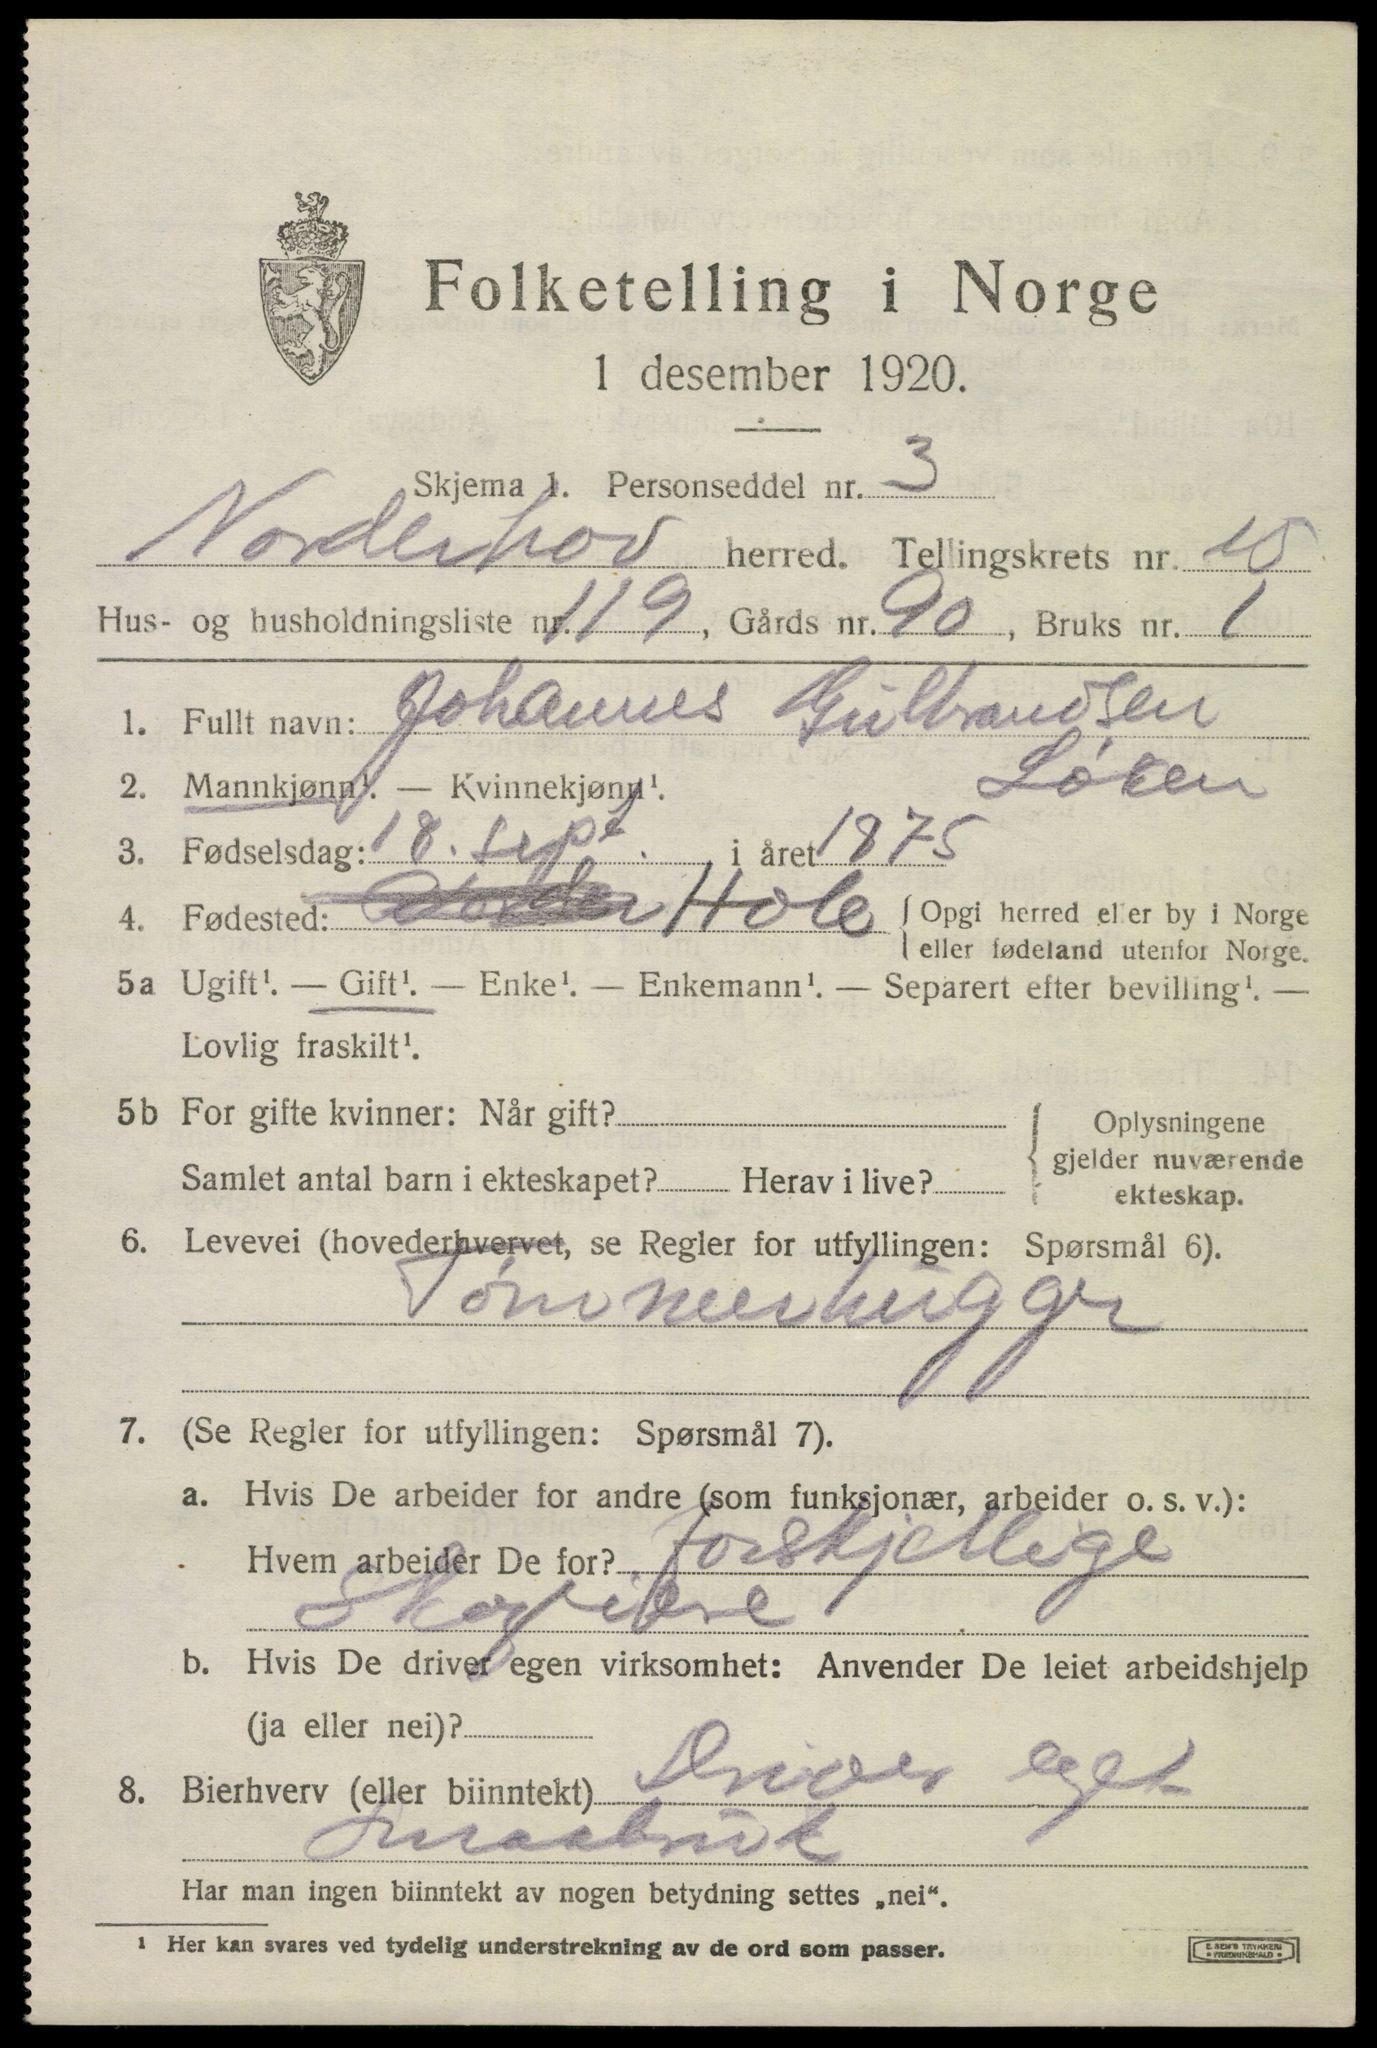 Folketelling i Norge
1 desember 1920.
Skjema 1. Personseddel nr. 3
Norderhov herred. Tellingskrets nr. 15
Hus- og husholdningsliste nr. 119, Gårds nr. 90, Bruks nr. 1
1. Fullt navn: Johannes Gulbrandsen
Løken
2. Mannkjønn¹. — Kvinnekjønn¹.
3. Fødselsdag: 18. sept. i året 1875
4. Fødested: Hole { Opgi herred eller by i Norge
eller fødeland utenfor Norge.
5a Ugift¹. — Gift¹. — Enke¹. — Enkemann¹. — Separert efter bevilling¹. —
Lovlig fraskilt¹.
5b For gifte kvinner: Når gift? { Oplysningene
gjelder nuværende
Samlet antal barn i ekteskapet? Herav i live? ekteskap.
6. Levevei (hovederhvervet, se Regler for utfyllingen: Spørsmål 6).
Tømmerhugger
7. (Se Regler for utfyllingen: Spørsmål 7).
a. Hvis De arbeider for andre (som funksjonær, arbeider o. s. v.):
Hvem arbeider De for? forskjellige
Skogeiere
b. Hvis De driver egen virksomhet: Anvender De leiet arbeidshjelp
(ja eller nei)?
8. Bierhverv (eller biinntekt) Driver eget
Smaabruk
Har man ingen biinntekt av nogen betydning settes „nei“.
¹ Her kan svares ved tydelig understrekning av de ord som passer.
E. SEM'S TRYKKERI
FREDRIKSHALD